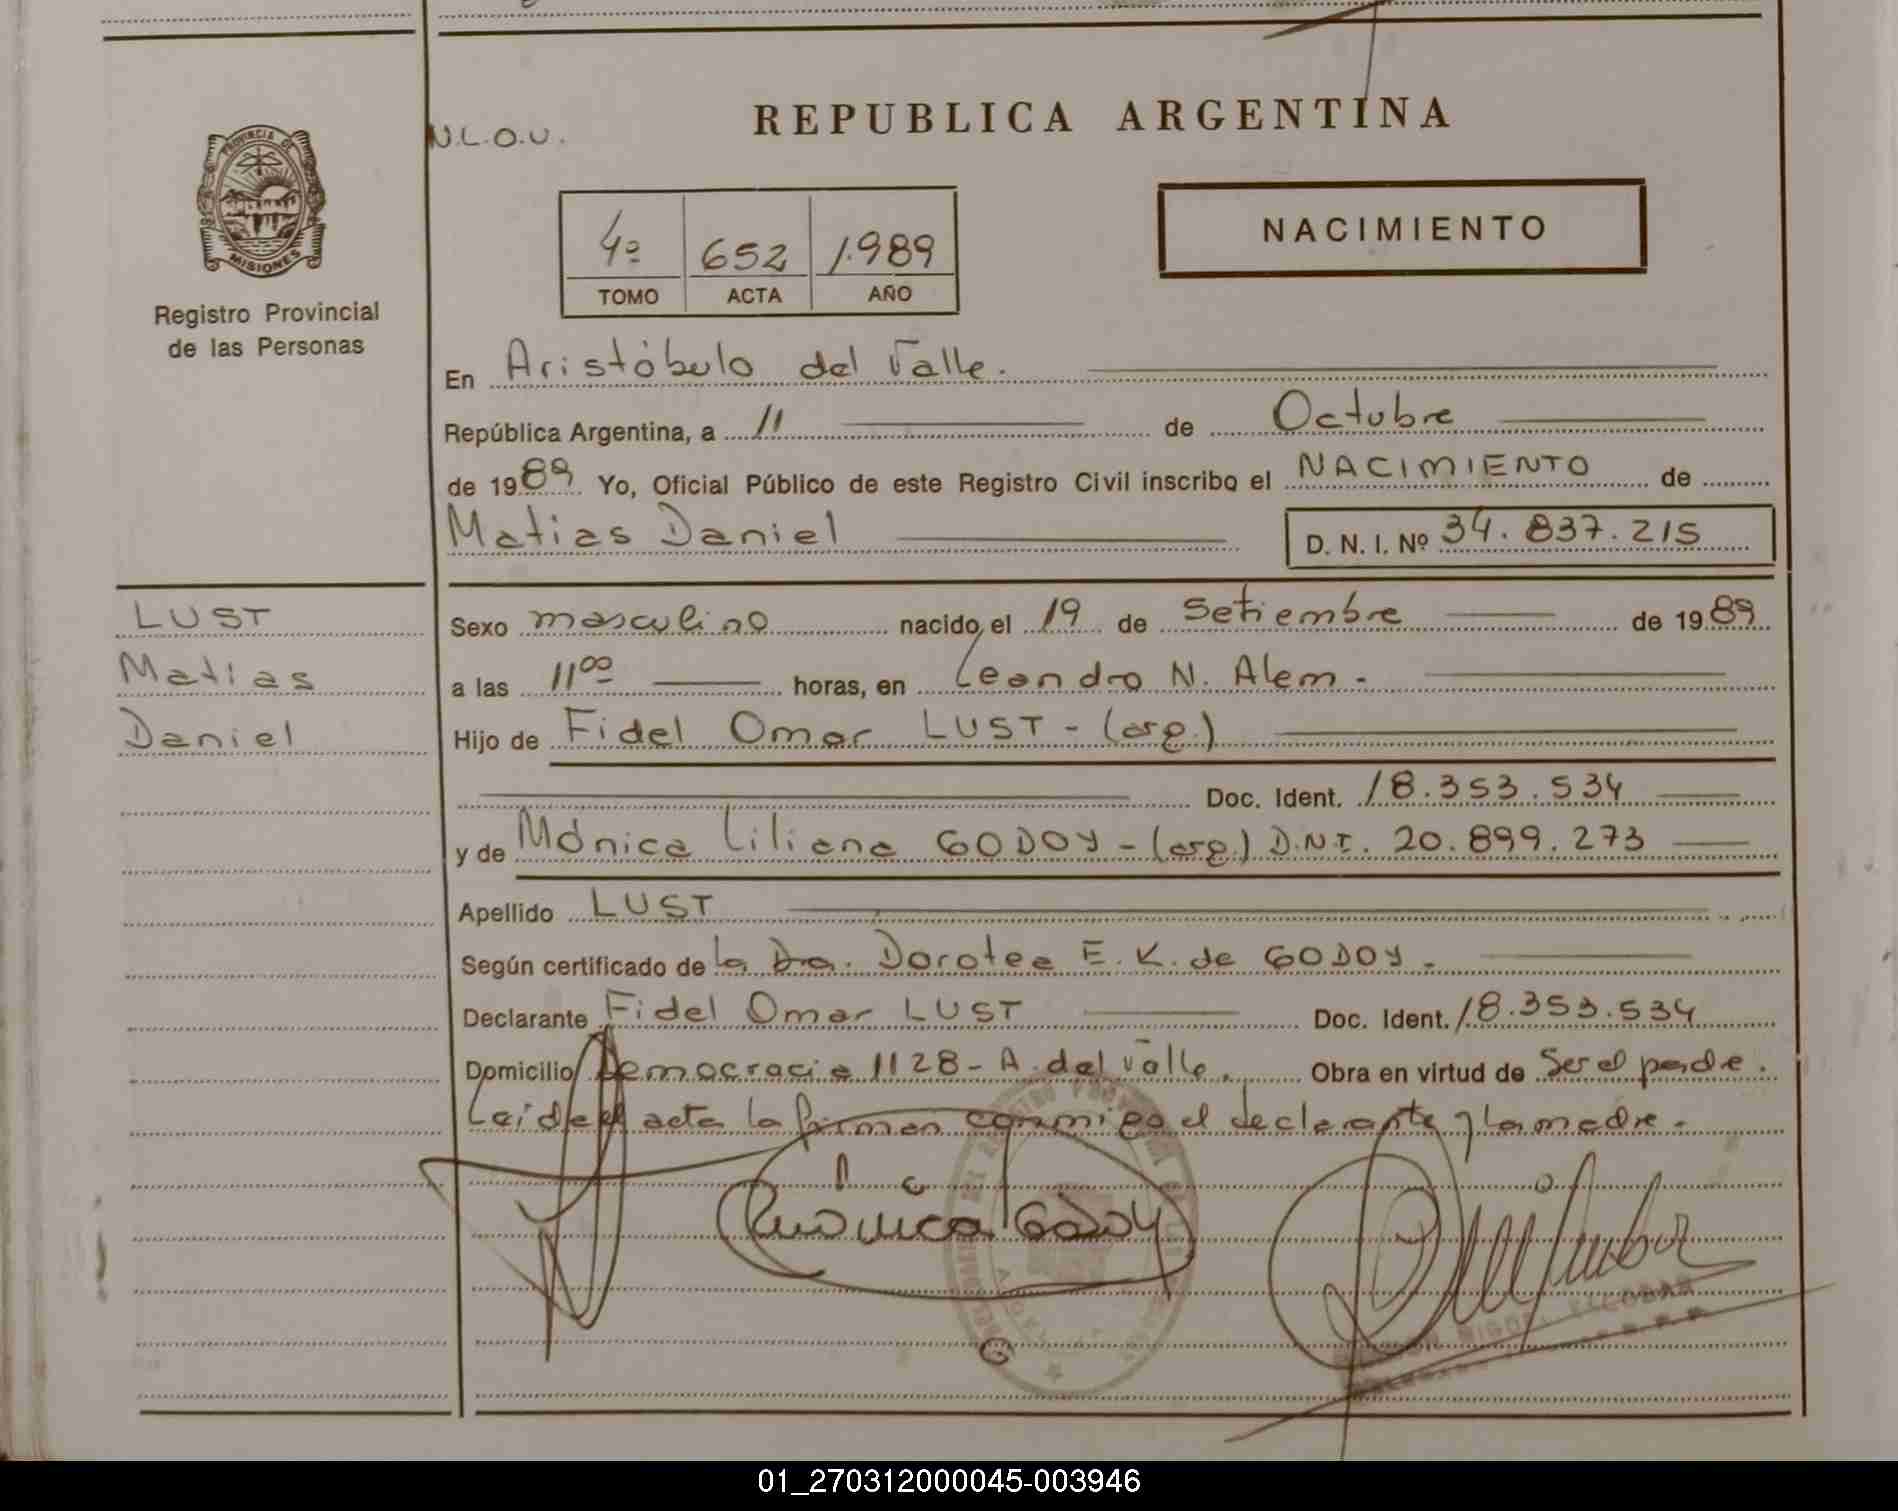 REPUBLICA ARGENTINA
N.L.O.U.
PROVINCIA DE
MISIONES
Registro Provincial
de las Personas
4º 652 1.989
TOMO ACTA AÑO
NACIMIENTO
En Aristóbulo del Valle.
República Argentina, a 11 de Octubre
de 1989 Yo, Oficial Público de este Registro Civil inscribo el NACIMIENTO de
Matias Daniel D. N. I. Nº 34.837.215
LUST
Matias
Daniel
Sexo masculino nacido el 19 de Setiembre de 1989
a las 11ºº horas, en Leandro N. Alem.
Hijo de Fidel Omar LUST - (arg.)
Doc. Ident. 18.353.534
y de Mónica Liliana GODOY - (arg.) D.N.I. 20.899.273
Apellido LUST
Según certificado de la Dra. Dorotea E. K. de GODOY.
Declarante Fidel Omar LUST Doc. Ident. 18.353.534
Domicilio Democracia 1128 - A. del Valle. Obra en virtud de Ser el padre.
Leida el acta la firman conmigo el declarante y la madre.
Mónica Godoy
MIGUEL ESCOBAR
01_270312000045-003946